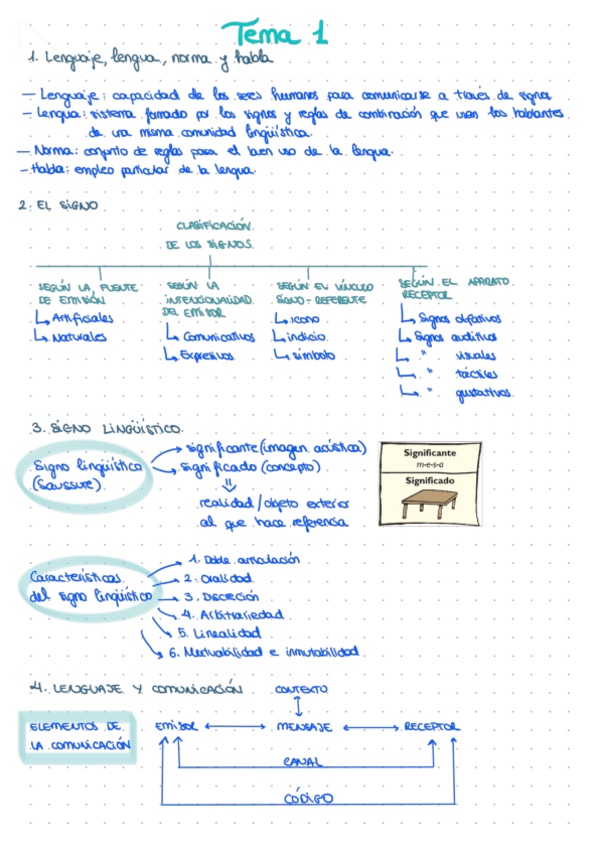 Tema 1
1. Lenguaje, lengua, norma y habla
— Lenguaje: capacidad de los seres humanos para comunicarse a través de signos
— Lengua: sistema formado por los signos y reglas de combinación que usan los hablantes
de una misma comunidad lingüística.
— Norma: conjunto de reglas para el buen uso de la lengua.
— Habla: empleo particular de la lengua.
2. EL SIGNO
CLASIFICACIÓN
DE LOS SIGNOS
SEGÚN LA FUENTE
DE EMISIÓN
Artificiales
Naturales
SEGÚN LA
INTENCIONALIDAD
DEL EMISOR
Comunicativos
Expresivos
SEGÚN EL VÍNCULO
SIGNO - REFERENTE
icono
indicio
símbolo
SEGÚN EL APARATO
RECEPTOR
Signos olfativos
Signos auditivos
" visuales
" táctiles
" gustativos
3. SIGNO LINGÜÍSTICO.
Signo lingüístico
(Saussure)
significante (imagen acústica)
significado (concepto)
realidad / objeto exterior
al que hace referencia
Significante
m-e-s-a
Significado
Características
del signo lingüístico
1. Doble articulación
2. Oralidad
3. Discreción
4. Arbitrariedad
5. Linealidad
6. Mutuabilidad e inmutabilidad
4. LENGUAJE Y COMUNICACIÓN
CONTEXTO
ELEMENTOS DE
LA COMUNICACIÓN
EMISOR
MENSAJE
RECEPTOR
CANAL
CÓDIGO